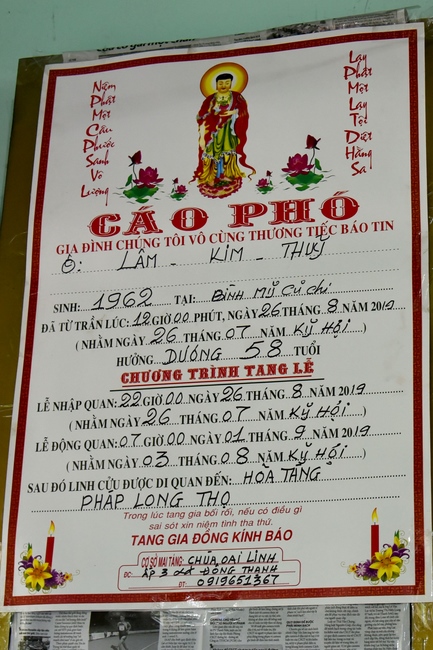 Niệm
Phật
Một
Câu
Phước
Sanh
Vô
Lượng
Lạy
Phật
Một
Lạy
Tội
Diệt
Hằng
Sa
CÁO PHÓ
GIA ĐÌNH CHÚNG TÔI VÔ CÙNG THƯƠNG TIẾC BÁO TIN
Ô: LÂM - KIM - THUỶ
SINH: 1962 TẠI: BÌNH MỸ CỦ CHI
ĐÃ TỪ TRẦN LÚC: 12 GIỜ 00 PHÚT, NGÀY 26 THÁNG 8 NĂM 2019
( NHẰM NGÀY 26 THÁNG 07 NĂM KỶ HỘI )
HƯỞNG DƯƠNG 58 TUỔI
CHƯƠNG TRÌNH TANG LỄ
LỄ NHẬP QUAN: 22 GIỜ 00 NGÀY 26 THÁNG 8 NĂM 2019
( NHẰM NGÀY 26 THÁNG 07 NĂM KỶ HỘI )
LỄ ĐỘNG QUAN: 07 GIỜ 00 NGÀY 01 THÁNG 9 NĂM 2019
( NHẰM NGÀY 03 THÁNG 08 NĂM KỶ HỘI )
SAU ĐÓ LINH CỬU ĐƯỢC DI QUAN ĐẾN: HỎA TÁNG
PHÁP LONG THỌ
Trong lúc tang gia bối rối, nếu có điều gì
sai sót xin niệm tình tha thứ.
TANG GIA ĐỒNG KÍNH BÁO
CƠ SỞ MAI TÁNG: CHÙA ĐẠI LINH
ĐC: ẤP 3 ĐÔNG THẠNH
ĐT: 0919651367